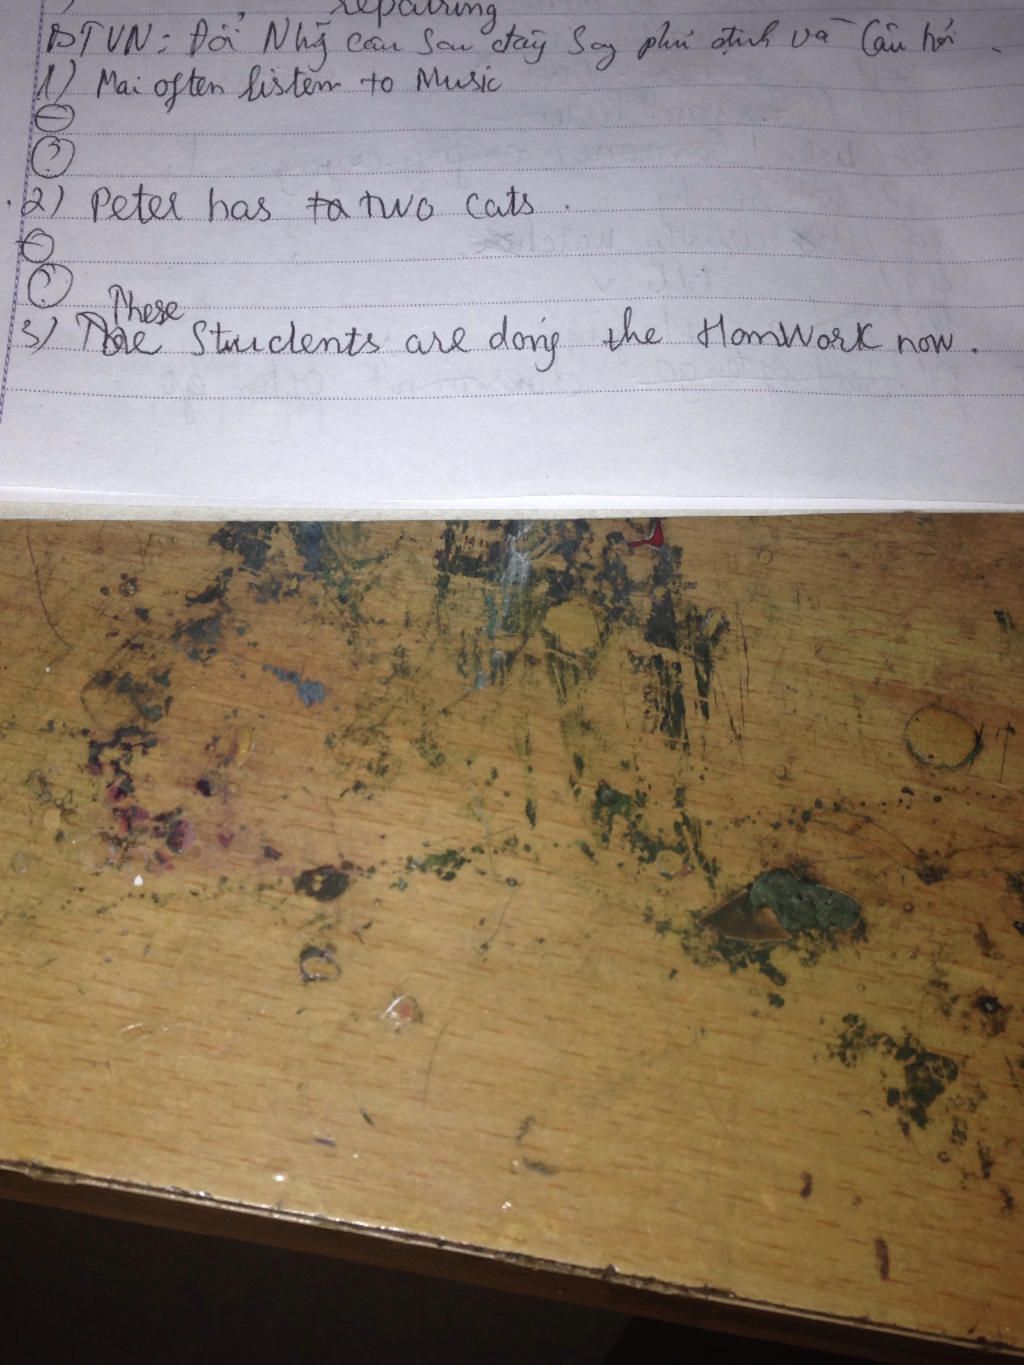 repairing
BTVN: Đổi Nhg câu sau đây sag phủ định và Câu hỏi.
1) Mai often listem to Music
⊖
?
2) Peter has to two cats.
⊖
?
These
3) The Students are doing the HomWork now.